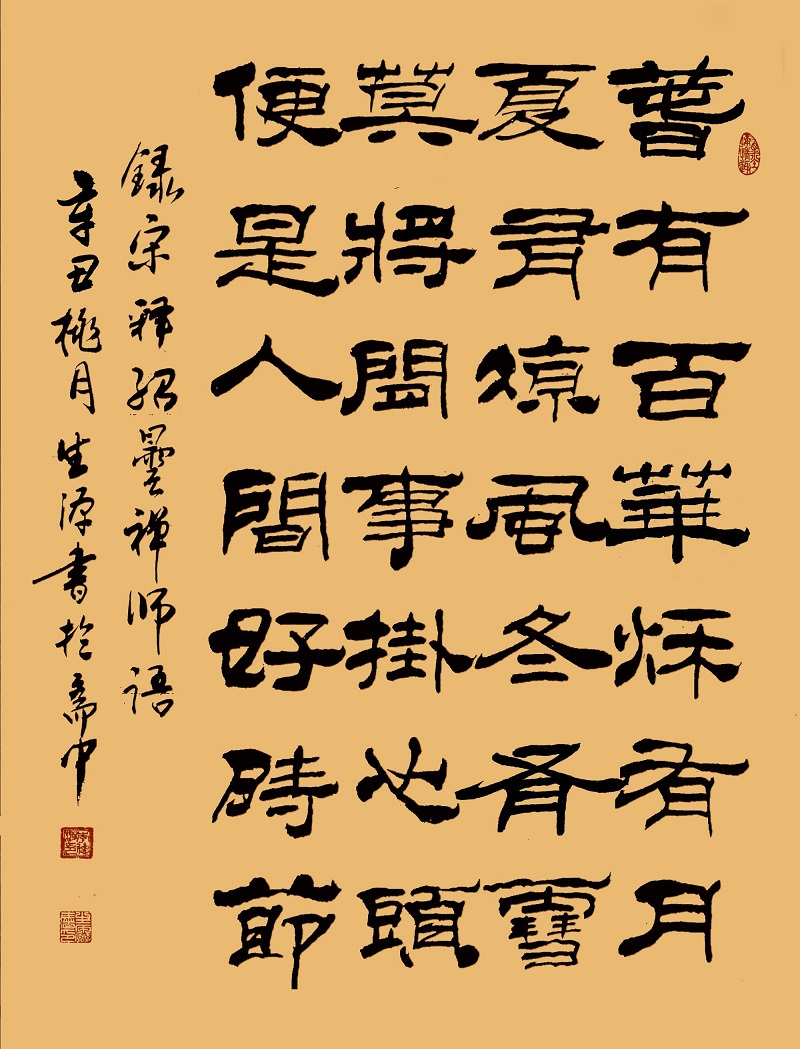 萅有百華秌有月
夏有凉風冬有雪
莫將閒事掛心頭
便是人間好時節
錄宋釋紹曇禅师语
辛丑桃月生源書於斋中